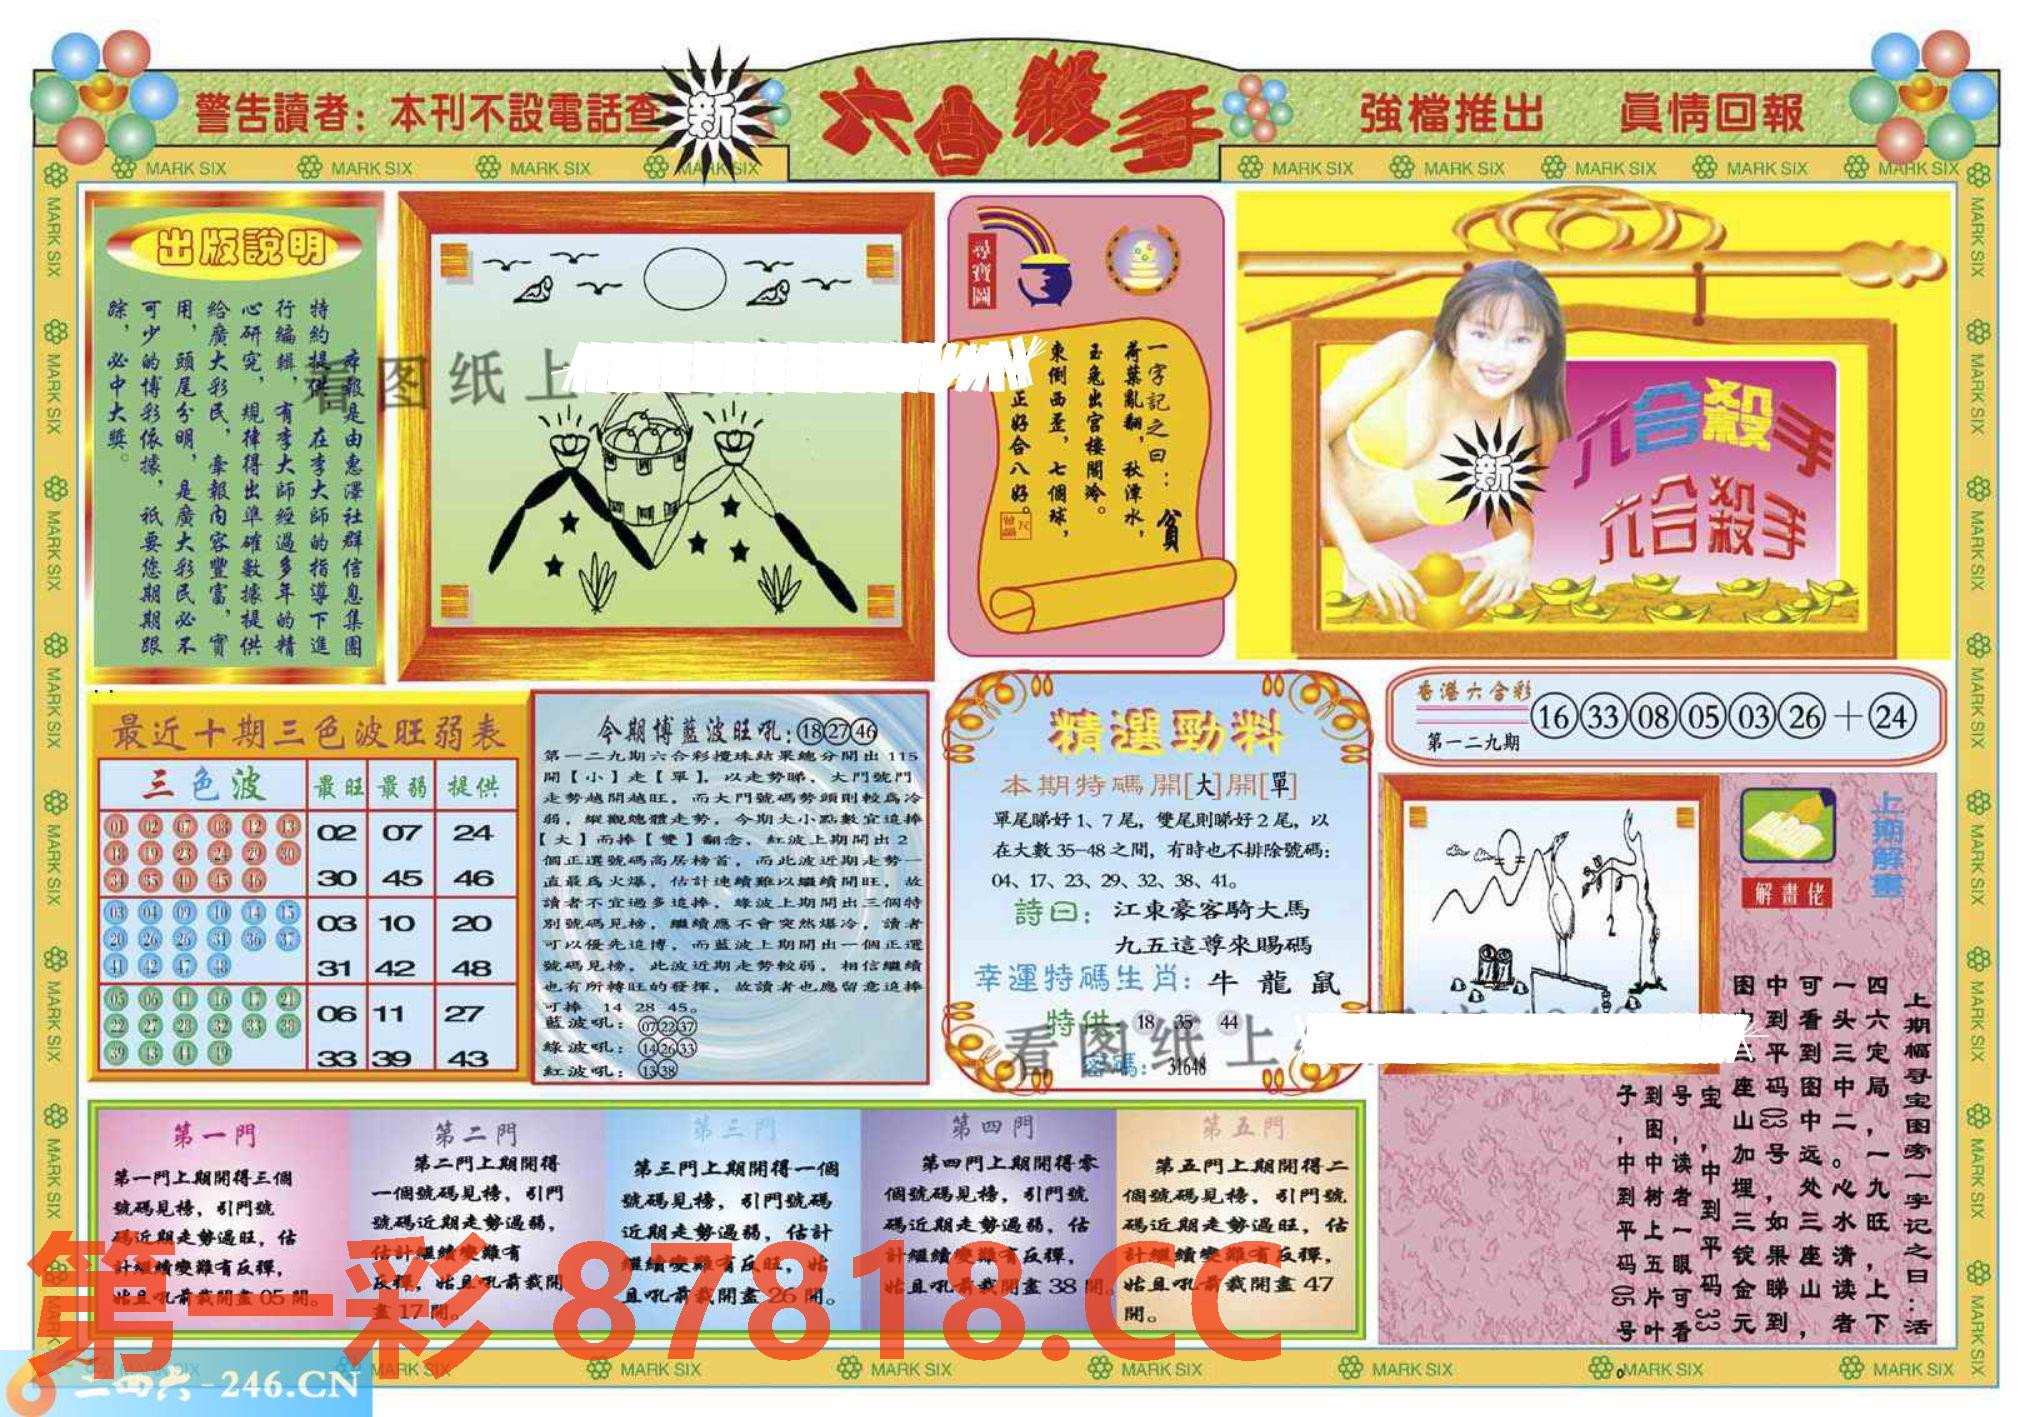 警告讀者：本刊不設電話查
新
六合殺手
強檔推出 眞情回報
MARK SIX
出版說明
本報是由惠澤社群信息集團
特約提供，在李大師的指導下進
行編輯，有李大師經過多年的精
心研究，規律得出準確數據提供
給廣大彩民，本報內容豐富，實
用，頭尾分明，是廣大彩民必不
可少的博彩依據，祇要您期期跟
踪，必中大獎。
看图纸上
尋寶圖
一字記之曰：貧
荷葉亂翻，秋潭水，
玉兔出宮樓閣冷。
東倒西歪，七個球，
正好合八好。
六合殺手
六合殺手
新
最近十期三色波旺弱表
三色波 最旺 最弱 提供
01 02 07 08 12 13
18 19 23 24 29 30
34 35 40 45 46
02 07 24
30 45 46
03 04 09 10 14 15
20 26 31 36 37
41 42 47 48
03 10 20
31 42 48
05 06 11 16 17 21
22 27 28 32 33 38
39 43 44 49
06 11 27
33 39 43
今期博藍波旺吼：18 27 46
第一二九期六合彩攪珠結果總分開出 115
開【小】走【單】，以走勢睇，大門號門
走勢越開越旺，而大門號碼勢頭則較爲冷
弱，縱觀總體走勢，今期大小點數宜追捧
【大】而捧【雙】翻念，紅波上期開出 2
個正選號碼高居榜首，而此波近期走勢一
直最爲火爆，估計連續難以繼續開旺，故
讀者不宜過多追捧，綠波上期開出三個特
別號碼見榜，繼續應不會突然爆冷，讀者
可以優先追博，而藍波上期開出一個正選
號碼見榜，此波近期走勢較弱，相信繼續
也有所轉旺的發揮，故讀者也應留意追捧
可捧 14 28 45。
藍波吼：07 22 37
綠波吼：14 26 33
紅波吼：13 38
精選勁料
本期特碼開[大]開[單]
單尾睇好 1、7 尾，雙尾則睇好 2 尾，以
在大數 35-48 之間，有時也不排除號碼：
04、17、23、29、32、38、41。
詩曰：江東豪客騎大馬
九五這尊來賜碼
幸運特碼生肖：牛 龍 鼠
特供：18 35 44
密碼：31648
看图纸上
香港六合彩
第一二九期
16 33 08 05 03 26 + 24
上期解畫
解畫佬
上期幅寻宝图旁一字记之曰：活
四六定局，一九旺，上下
一头三中二。心水清读者
可看到图中远处三座山，
中到平码03号，如果睇到
图中三座山加埋三锭金元
宝，中到平码33
号，读者一眼可看
到图中树上五片叶
子，中到平码05号
第一門
第一門上期開得三個
號碼見榜，引門號
碼近期走勢過旺，估
計繼續變難有反彈，
姑且吼前裁開盡 05 開。
第二門
第二門上期開得
一個號碼見榜，引門
號碼近期走勢過弱，
估計繼續變難有
反彈，姑且吼前裁開
盡 17 開。
第三門
第三門上期開得一個
號碼見榜，引門號碼
近期走勢過弱，估計
繼續變難有反旺，姑
且吼前裁開盡 26 開。
第四門
第四門上期開得零
個號碼見榜，引門號
碼近期走勢過弱，估
計繼續變難有反彈，
姑且吼前裁開盡 38 開。
第五門
第五門上期開得二
個號碼見榜，引門號
碼近期走勢過旺，估
計繼續變難有反彈，
姑且吼前裁開盡 47
開。
第一彩 87818.CC
二四六-246.CN